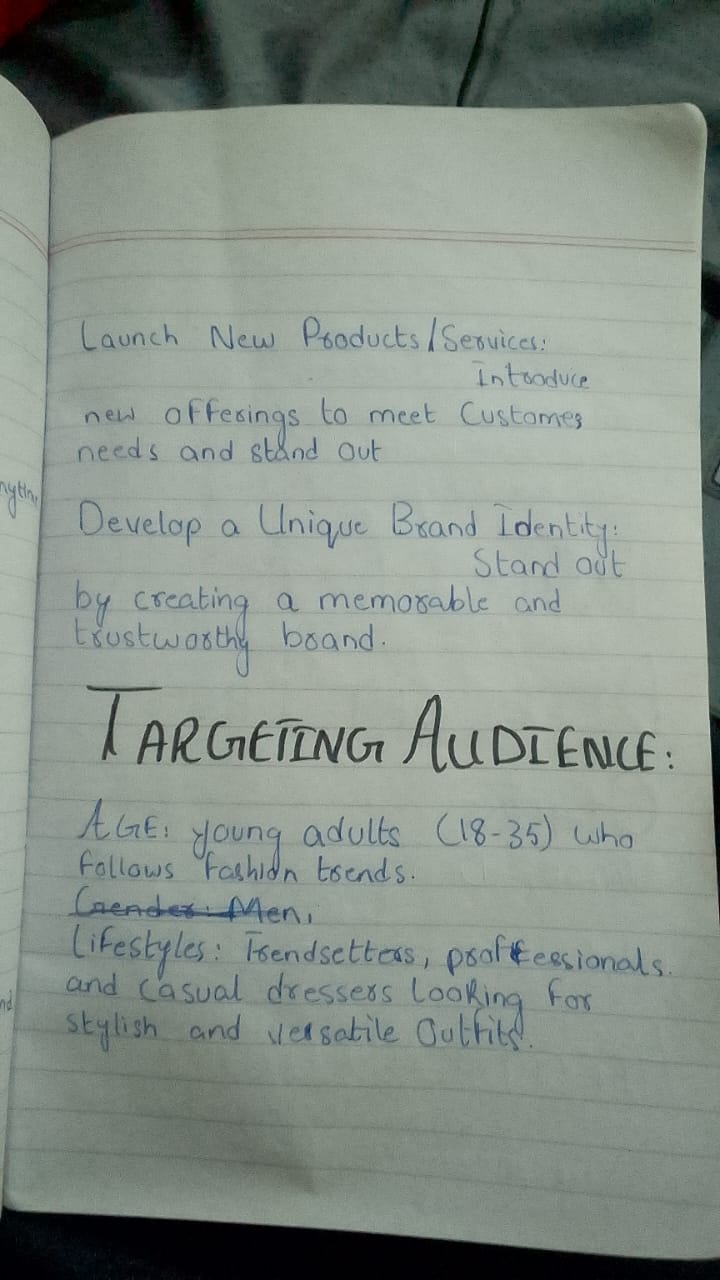 Launch New Products/Services:
Introduce
new offerings to meet Customer
needs and stand out
Develop a Unique Brand Identity:
Stand out
by creating a memorable and
trustworthy brand.
TARGETING AUDIENCE:
AGE: young adults (18-35) who
follows fashion trends.
Gender: Men,
Lifestyles: Trendsetters, proffessionals.
and casual dressers looking for
stylish and versatile Outfits.